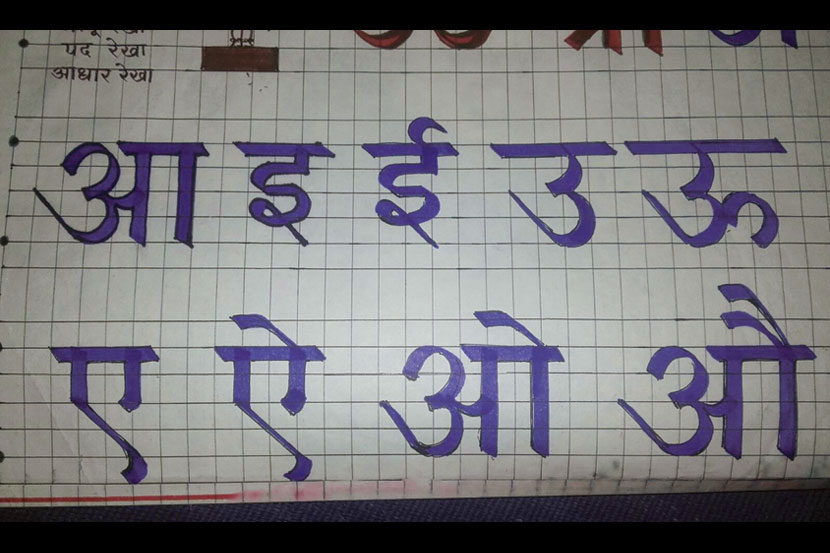 पद रेखा
आधार रेखा
आ इ ई उ ऊ
ए ऐ ओ औ